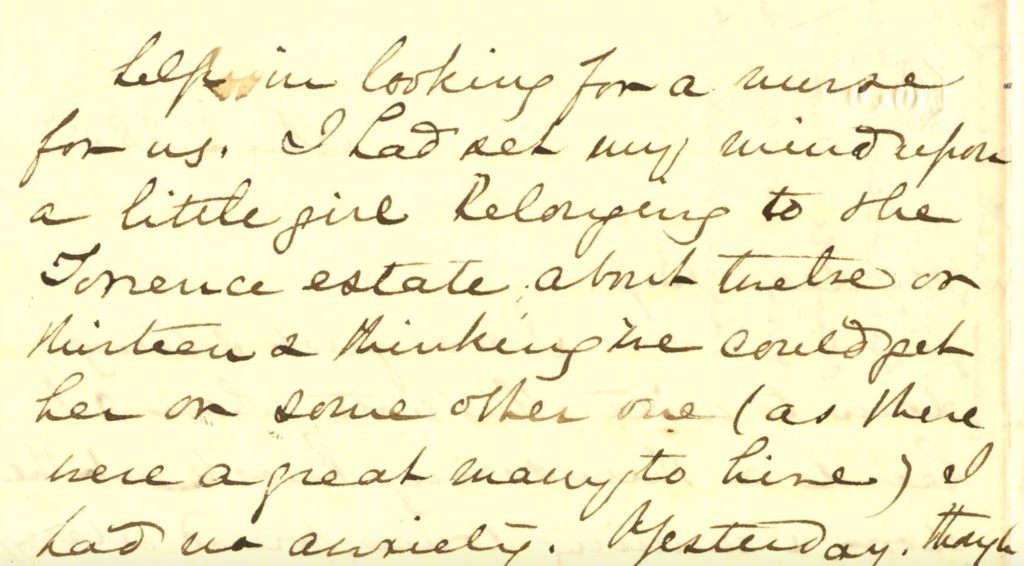 help in looking for a nurse
for us. I had set my mind upon
a little girl belonging to the
Torrence estate about twelve or
thirteen & thinking we could get
her or some other one (as there
were a great many to hire) I
had no anxiety. Yesterday. though